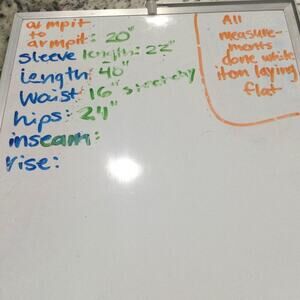 armpit
to
armpit: 20"
sleeve length: 22"
length: 40"
Waist: 16" stretchy
hips: 24"
inseam:
rise:
All
measure-
ments
done while
item laying
flat